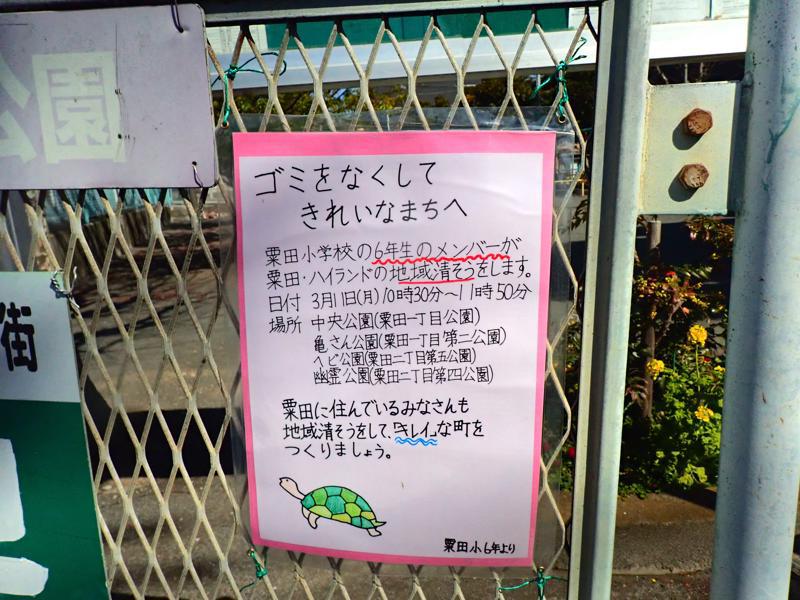 公園
街
ゴミをなくして
きれいなまちへ
粟田小学校の6年生のメンバーが
粟田・ハイランドの地域清そうをします。
日付 3月1日(月)10時30分〜11時50分
場所 中央公園(粟田一丁目公園)
亀さん公園(粟田一丁目第二公園)
ヘビ公園(粟田二丁目第五公園)
幽霊公園(粟田二丁目第四公園)
粟田に住んでいるみなさんも
地域清そうをして、「キレイ」な町を
つくりましょう。
粟田小6年より